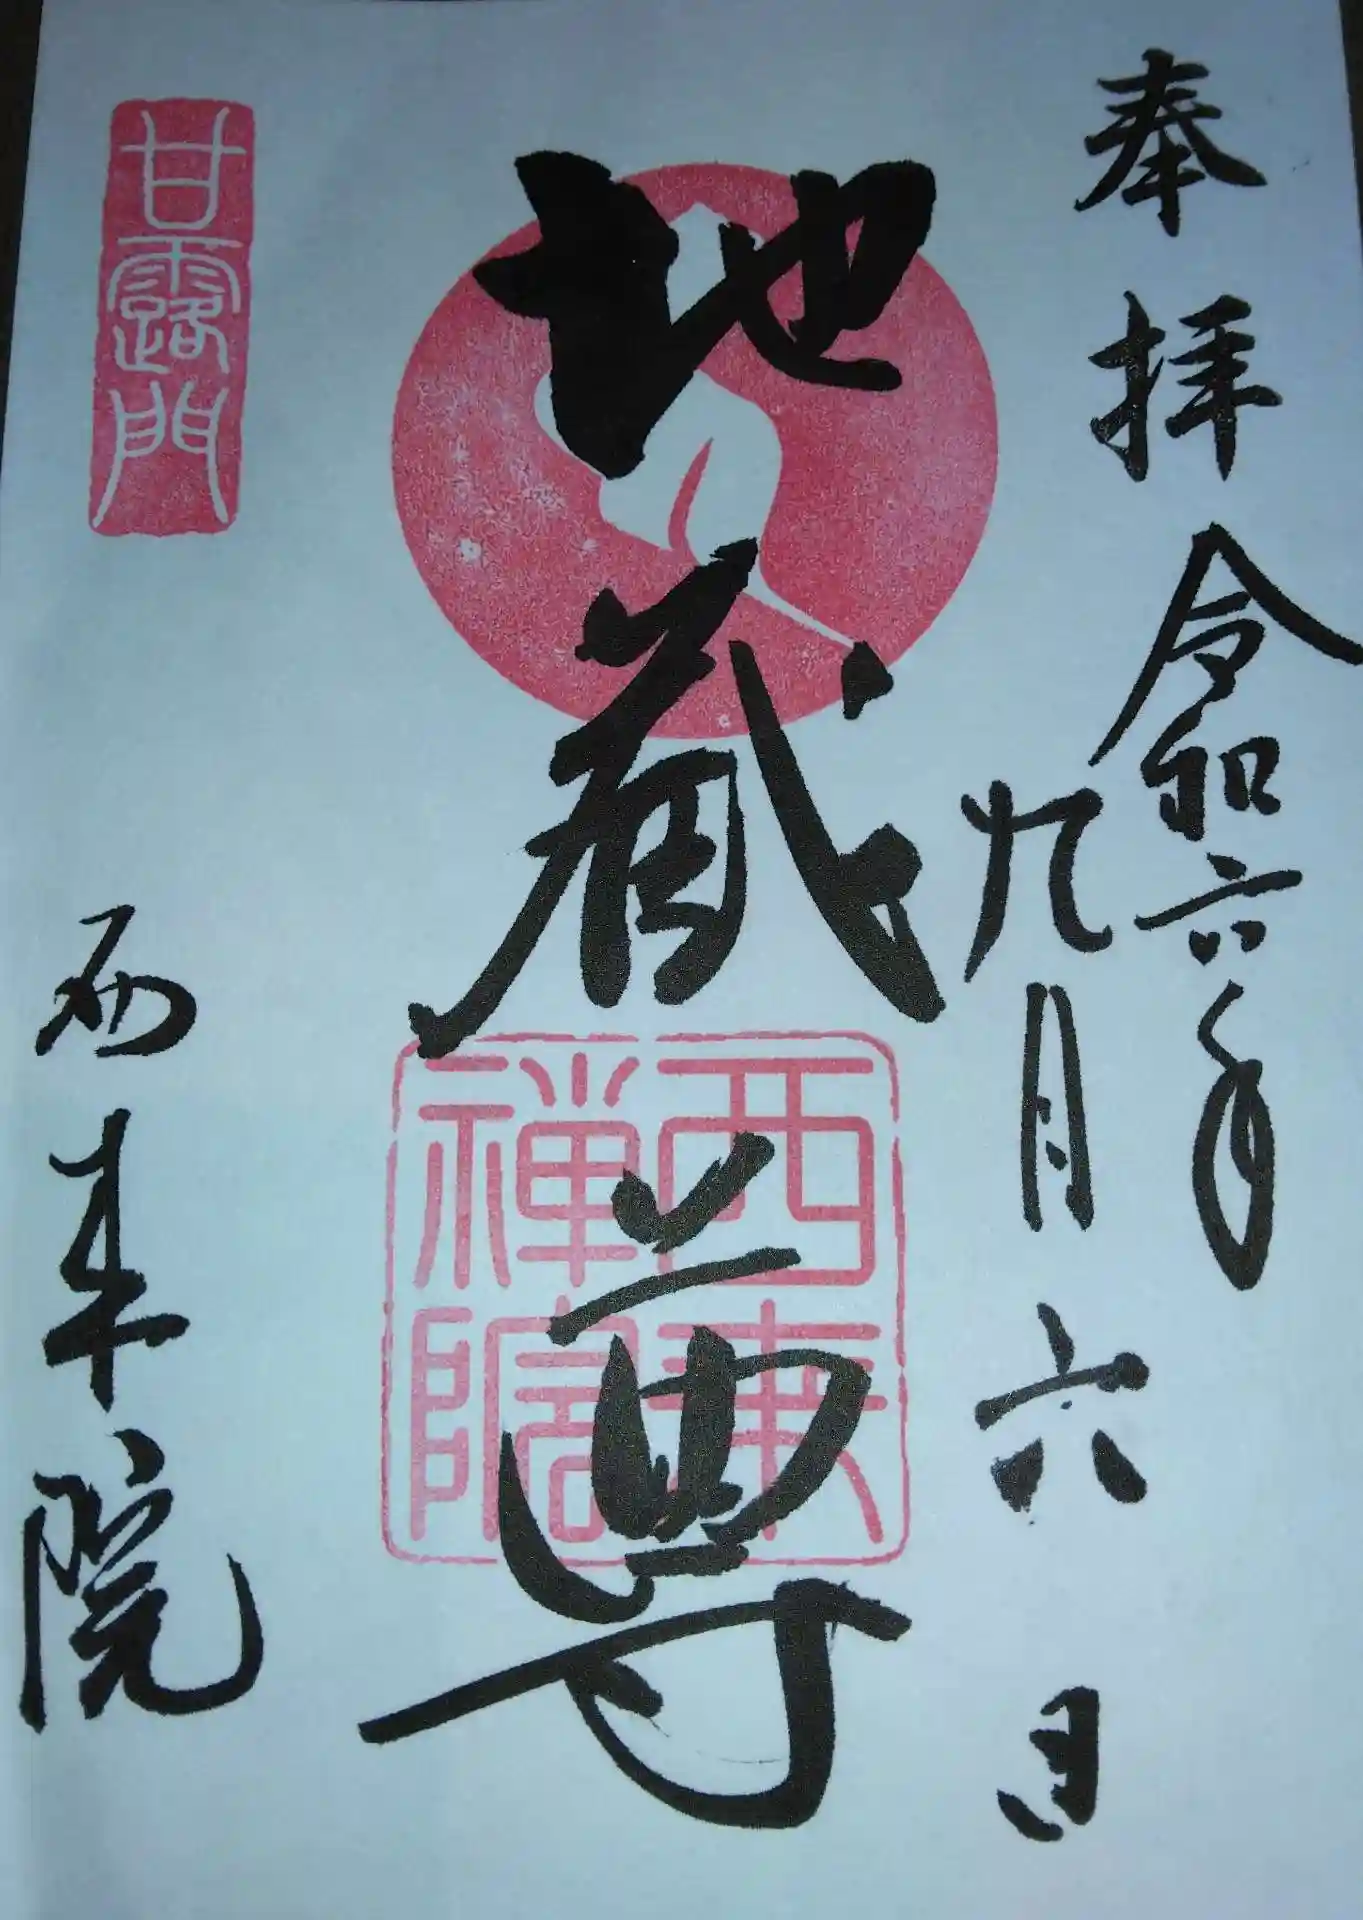 奉拝
令和六年
九月六日
地蔵尊
西来禅院
甘露門
西来院